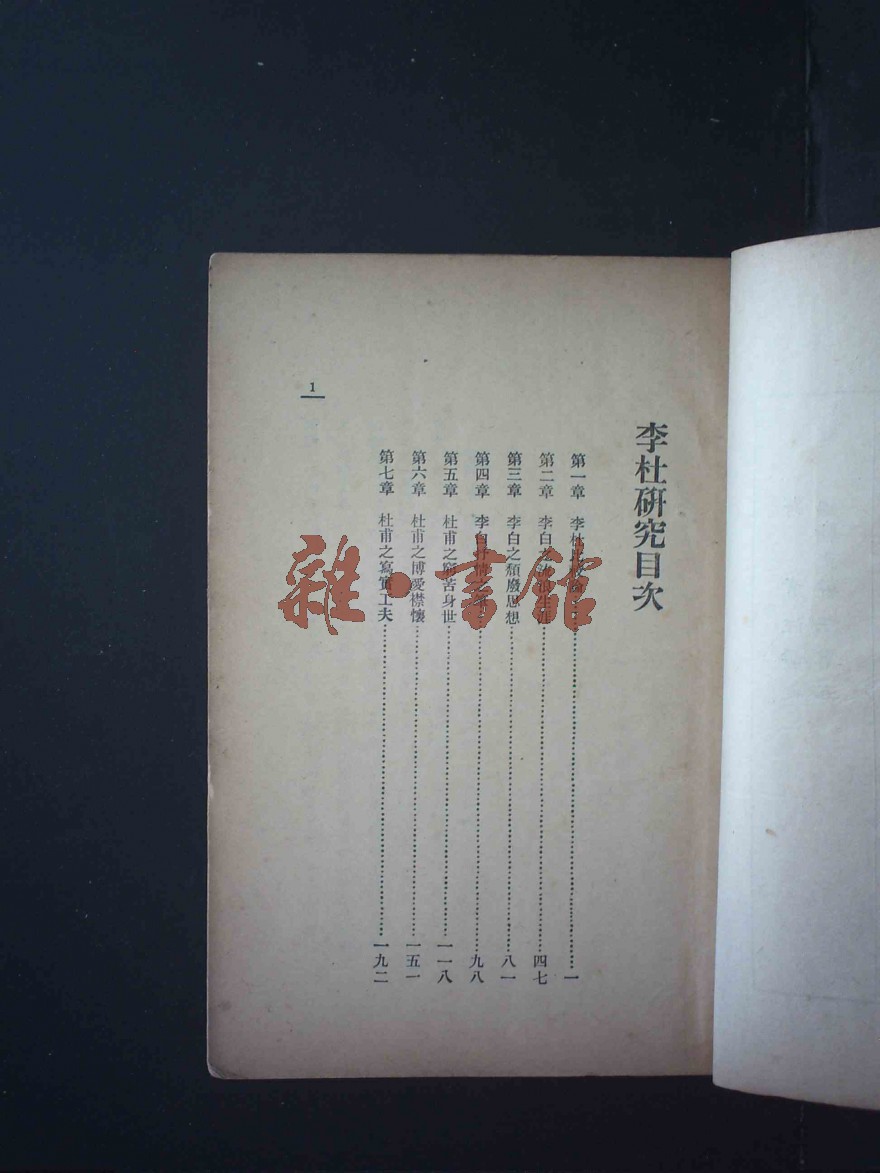 李杜研究目次
第一章 李杜 一
第二章 李白之流浪生活 四七
第三章 李白之頹廢思想 八一
第四章 李白抒情之 九八
第五章 杜甫之窮苦身世 一一八
第六章 杜甫之博愛襟懷 一五一
第七章 杜甫之寫實工夫 一九二
1
雜·書館